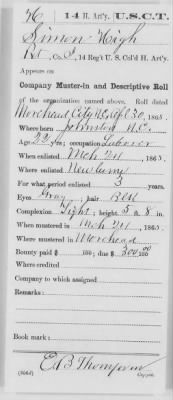 H 14 H. Art'y. U.S.C.T.
Simon High
Pvt, Co. , 14 Reg't U.S. Col'd H. Art'y.
Appears on
Company Muster-in and Descriptive Roll
of the organization named above. Roll dated
Morehead City N.C. Apl 30, 1865
Where born Johnston N.C.
Age 22 y'rs; occupation Laborer
When enlisted Mch 24, 1865
Where enlisted Newbern
For what period enlisted 3 years.
Eyes Gray; hair Red
Complexion Light; height 5 ft. 8 in.
When mustered in Mch 24, 1865
Where mustered in Morehead
Bounty paid $ 100; due $ 300.00 100
Where credited
Company to which assigned
Remarks:
Book mark:
E B Thompson
Copyist.